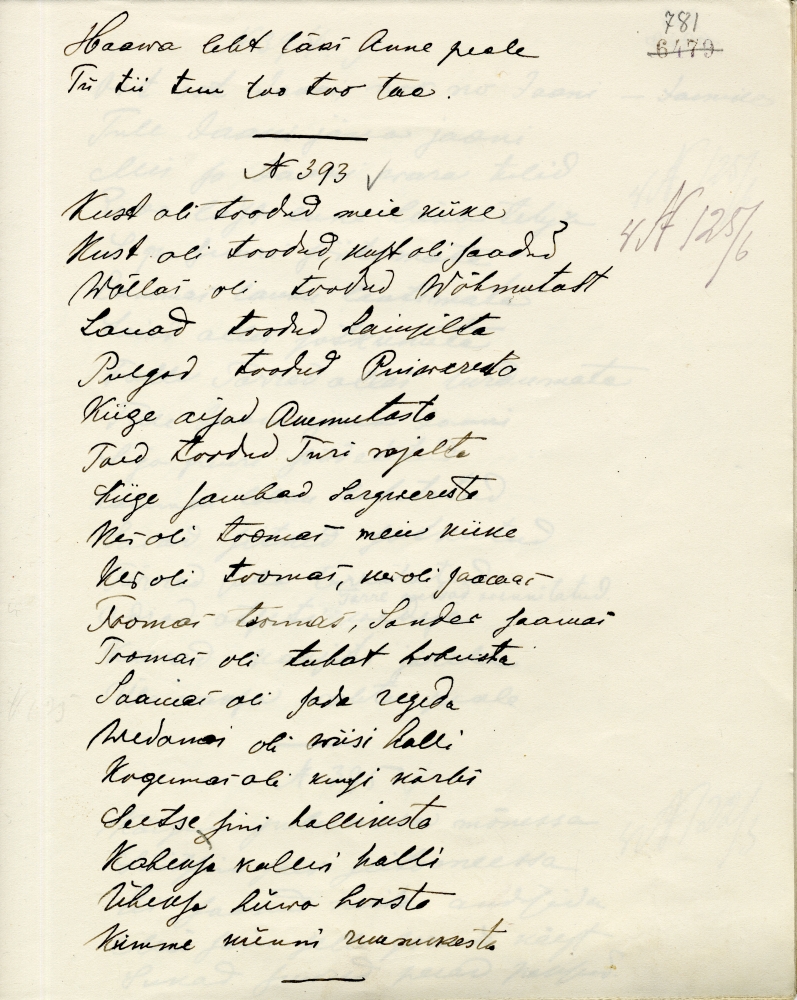 781
6479
Haawa leht läks Anne peale
Tii tii tuu too too tae.
N 393
4 N 125/6
Kust oli toodud meie kiike
Kust oli toodud, kust oli saadud?
Wõllas oli toodud Wõhmutast
Lauad toodud Lainjilta
Pulgad toodud Puiweresta
Kiige aisad Auemutasta
Taed toodud Türi rajalta
Kiige sambad Sargweresta
Kes oli toomas meie kiike
Kes oli toomas, kes oli saamas
Toomas toomas, Sander saamas
Toomas oli tuhat hobusta
Saamas oli sada regeda
Wedamas oli wiisi halli
Kogumas oli kuusi kõrbi
Seitse sini hallikesta
Kaheksa kalleri halli
Üheksa hüwa hoosta
Kümme künni ruunukesta